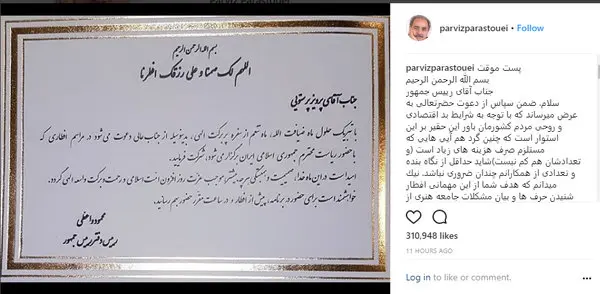 بسم الله الرحمن الرحیم
اللهم لک صمنا و علی رزقک افطرنا
جناب آقای پرویز پرستویی
با تبریک حلول ماه ضیافت الله، ماه تنعم از سفره پر برکت الهی، بدینوسیله از جناب عالی دعوت می شود در مراسم افطاری که
با حضور ریاست محترم جمهوری اسلامی ایران برگزار می شود، شرکت فرمایید.
امید است در این ماه خدا، صمیمیت و همبستگی هرچه بیشتر ما موجب عزت روز افزون امت اسلامی و رحمت و برکت واسعه الهی گردد.
خواهشمند است برای حضور در برنامه، پیش از افطار و در ساعت مقرر حضور بهم رسانید.
محمود واعظی
رییس دفتر رییس جمهور
parvizparastouei • Follow
parvizparastouei پست موقت
بسم الله الرحمن الرحیم
جناب آقای رییس جمهور
سلام. ضمن سپاس از دعوت حضرتعالی به
عرض میرساند که با توجه به شرایط بد اقتصادی
و روحی مردم کشورمان باور این حقیر بر این
استوار است که چنین گرد هم آیی هایی که
مستلزم صرف هزینه های زیاد است (و
تعدادشان هم کم نیست)شاید حداقل از نگاه بنده
و تعدادی از همکارانم چندان ضروری نباشد. نیک
میدانم که هدف شما از این مهمانی افطار
شنیدن حرف ها و بیان مشکلات جامعه هنری از
310,948 likes
11 HOURS AGO
Log in to like or comment.